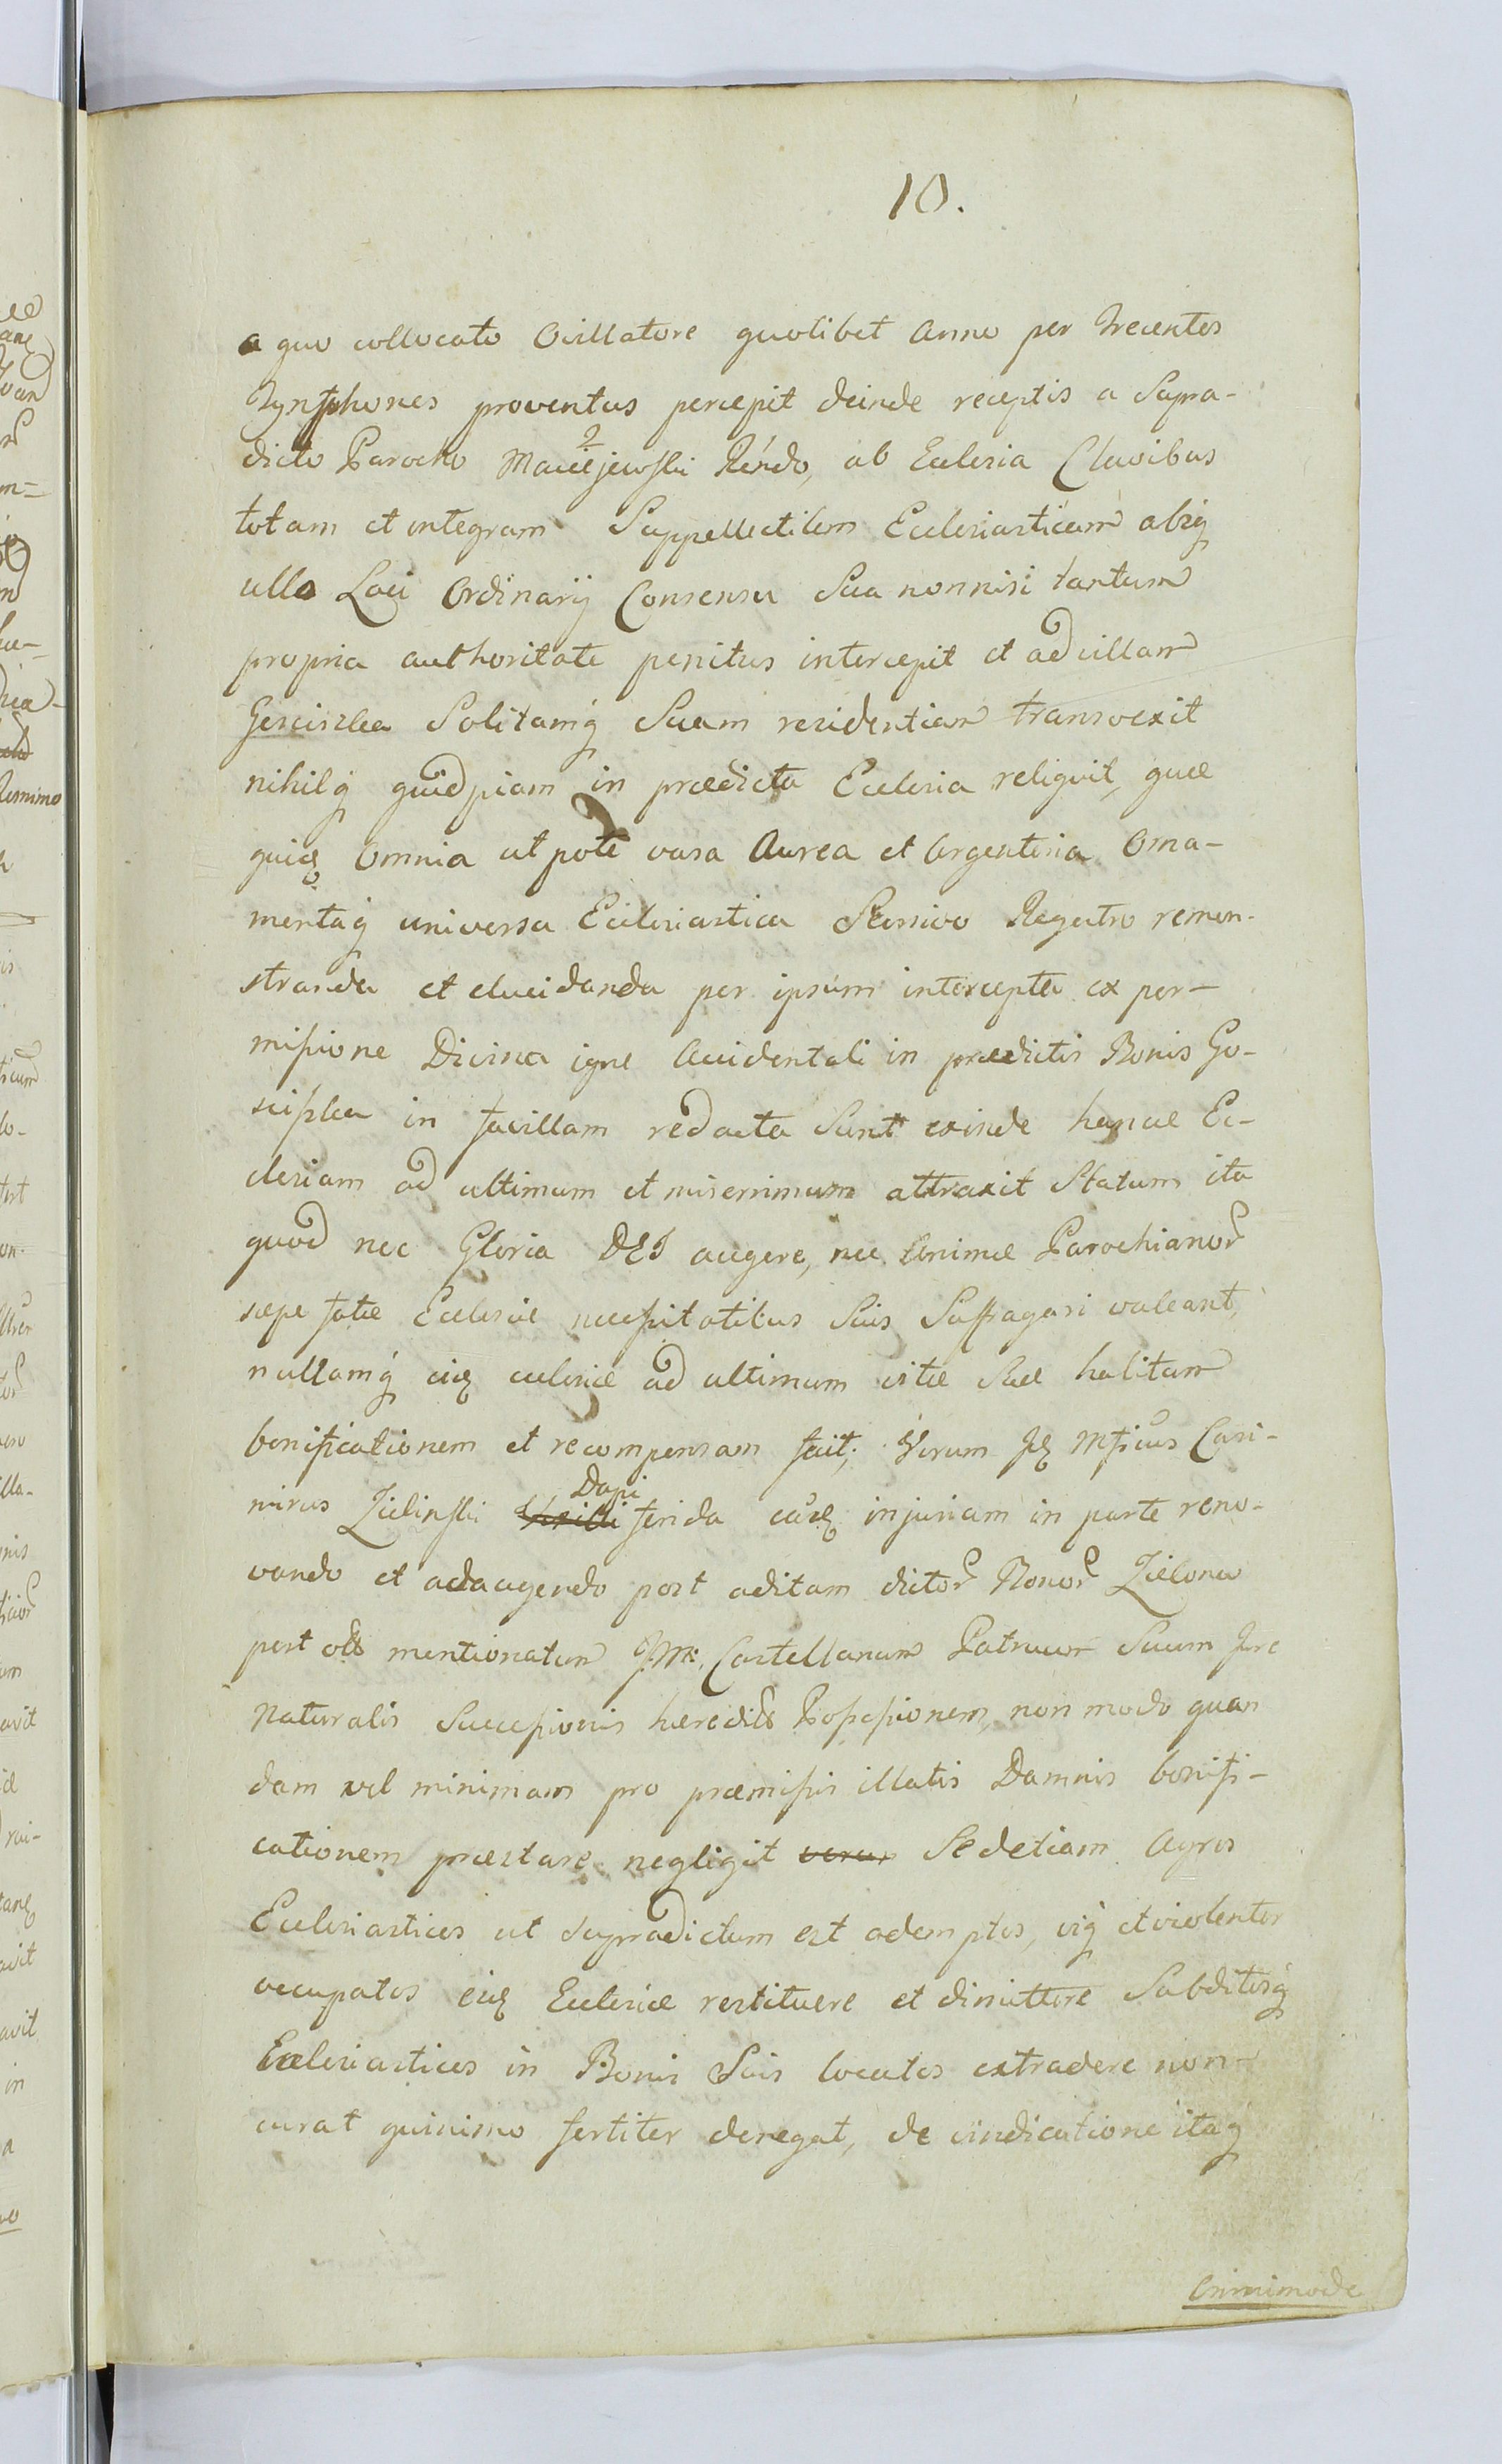 10.
a quo collocato Ovillatore quolibet Anno per Trecentos
Tynphones proventus percepit deinde receptis a Supra-
dicto Parocho Maciejewski Rendo, ab Ecclesia Clavibus
totam et integram Suppellectilem Ecclesiasticam absq
ullo Loci Ordinarij Consensu Sua nonnisi tantum
propria authoritate penitus intercepit et ad villam
Gosciszka Solitamq Suam residentiam transvexit
nihilq quidpiam in prædicta Ecclesia reliquit, quæ
quidē Omnia ut pote vasa Aurea et Argentena Orna-
mentaq universa Ecclesiastica Seorsivo Regestro remon-
stranda et elucidanda per ipsum intercepta ex per-
missione Divina igne Accidentali in prædictis Bonis Go-
scişka in favillam redacta Sunt exinde hancce Ec-
clesiam ad ultimum et miserrimum attraxit Statum ita
quod nec Gloria DEI augere, nec Animæ Parochianor
sæpe fatæ Ecclesiæ necessitatibus Suis Suffragari valeant,
nullamq ejq ecclesiæ ad ultimum vitæ Suæ halitum
bonificationem et recompensam fecit; Verum Mficus Casi-
mirus Zielinski Dapi ferida injuriam in parte reno-
vando et adaugendo post aditam dictor Bonor Zielona
post mentionatum Castellanum Patruum Suum Jure
Naturalis Successionis Possessionem, non modo quan
dam vel minimam pro præmissis illatis Damnis bonifi-
cationem præstare negligit verum Sed etiam Agros
Ecclesiasticos ut supradictum est ademptos, viq et violenter
occupatos Ecclesiæ restituere et dimittere Subditosq
Ecclesiasticos in Bonis Suis locatos extradere non-
curat quinimo fortiter denegat, de vindicatione itaq
Omnimode